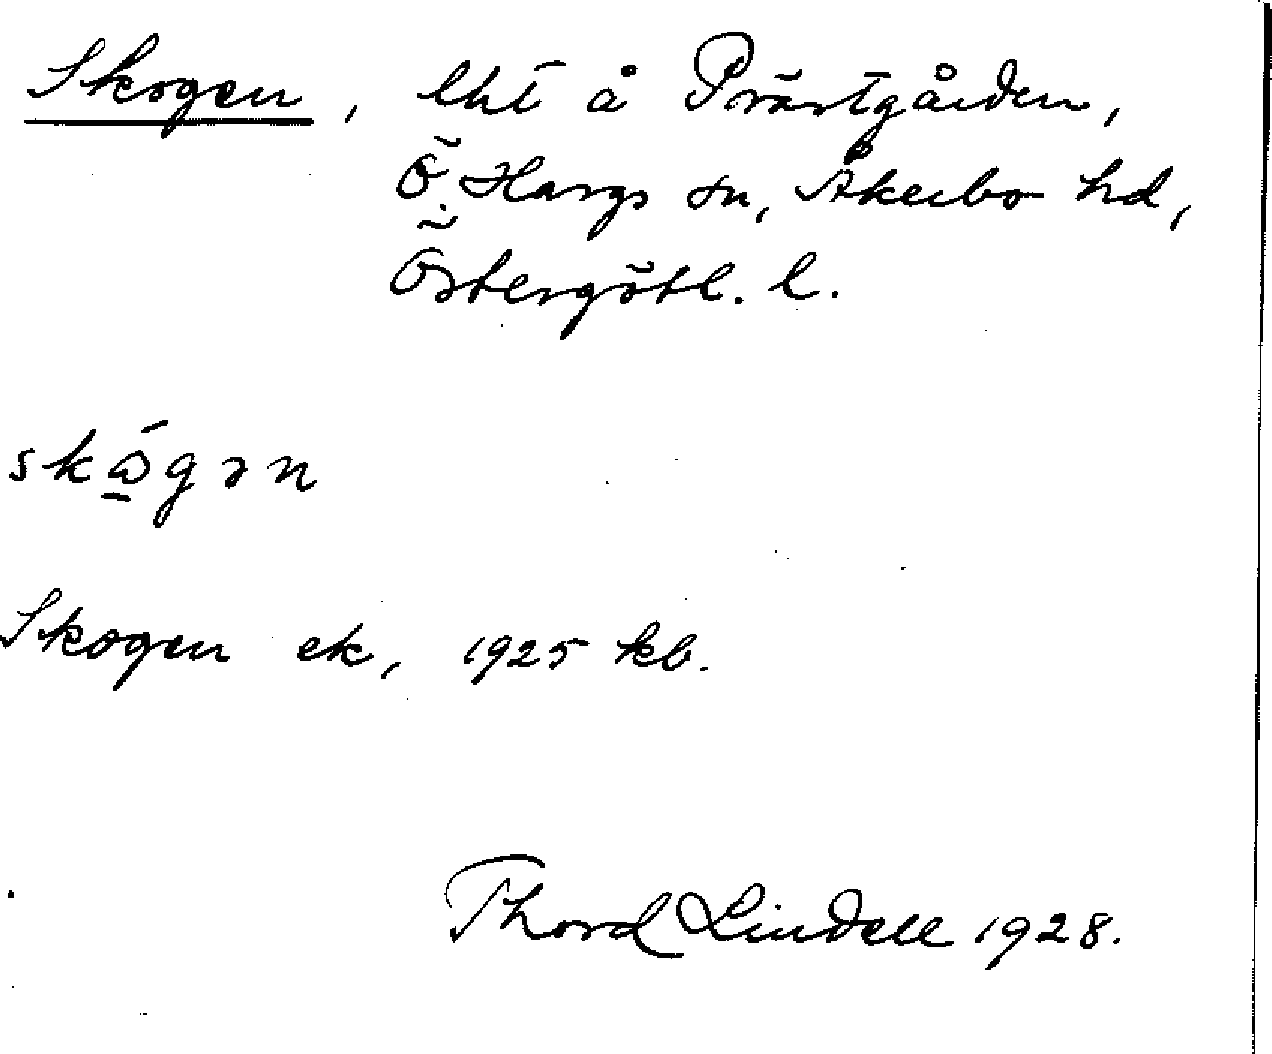 Skogen, lht å Prästgården,
Ö. Hargs sn, Åkerbo hd,
Östergötl. l.
skɷ̱́gən
Skogen ek, 1925 kb.
Thord Lindell 1928.